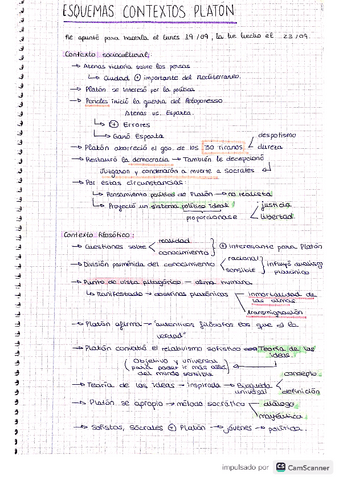 ESQUEMAS CONTEXTOS PLATÓN
Me apunté para hacerla el lunes 19/09, la he hecho el 23/09.
Contexto sociocultural:
→ Atenas victoria sobre los persas
↳ Ciudad + importante del Mediterráneo.
→ Platón se interesó por la política
→ Pericles inició la guerra del Peloponeso
Atenas vs. Esparta.
↳ + Errores
↳ Ganó Esparta
→ Platón aborreció el gob. de los 30 tiranos
despotismo
dureza
→ Restauró la democracia → También le decepcionó
Juzgaron y condenaron a muerte a Sócrates
→ Por estas circunstancias:
↳ Pensamiento político de Platón → no realista
↳ Proyectó un sistema político ideal
proporcionase
justicia
libertad
Contexto filosófico:
→ Cuestiones sobre
realidad
conocimiento
+ interesante para Platón
→ División parménida del conocimiento
racional
sensible
influyó
platónico
→ Punto de vista pitagórico → alma humana
↳ Manifestado → doctrinas platónicas
Inmortalidad de las almas
transmigración
→ Platón afirma → "auténticos filósofos los que a la
verdad"
→ Platón combatió el relativismo sofístico → Teoría de las
Ideas.
(Objetivo y universal
para poder ir más allá
del mundo sensible)
→ Teoría de las Ideas → inspirada → Búsqueda
universal
concepto
definición
→ Platón se apropió → método socrático
diálogo
mayéutica
→ Sofistas, Sócrates + Platón → jóvenes → política.
impulsado por CS CamScanner